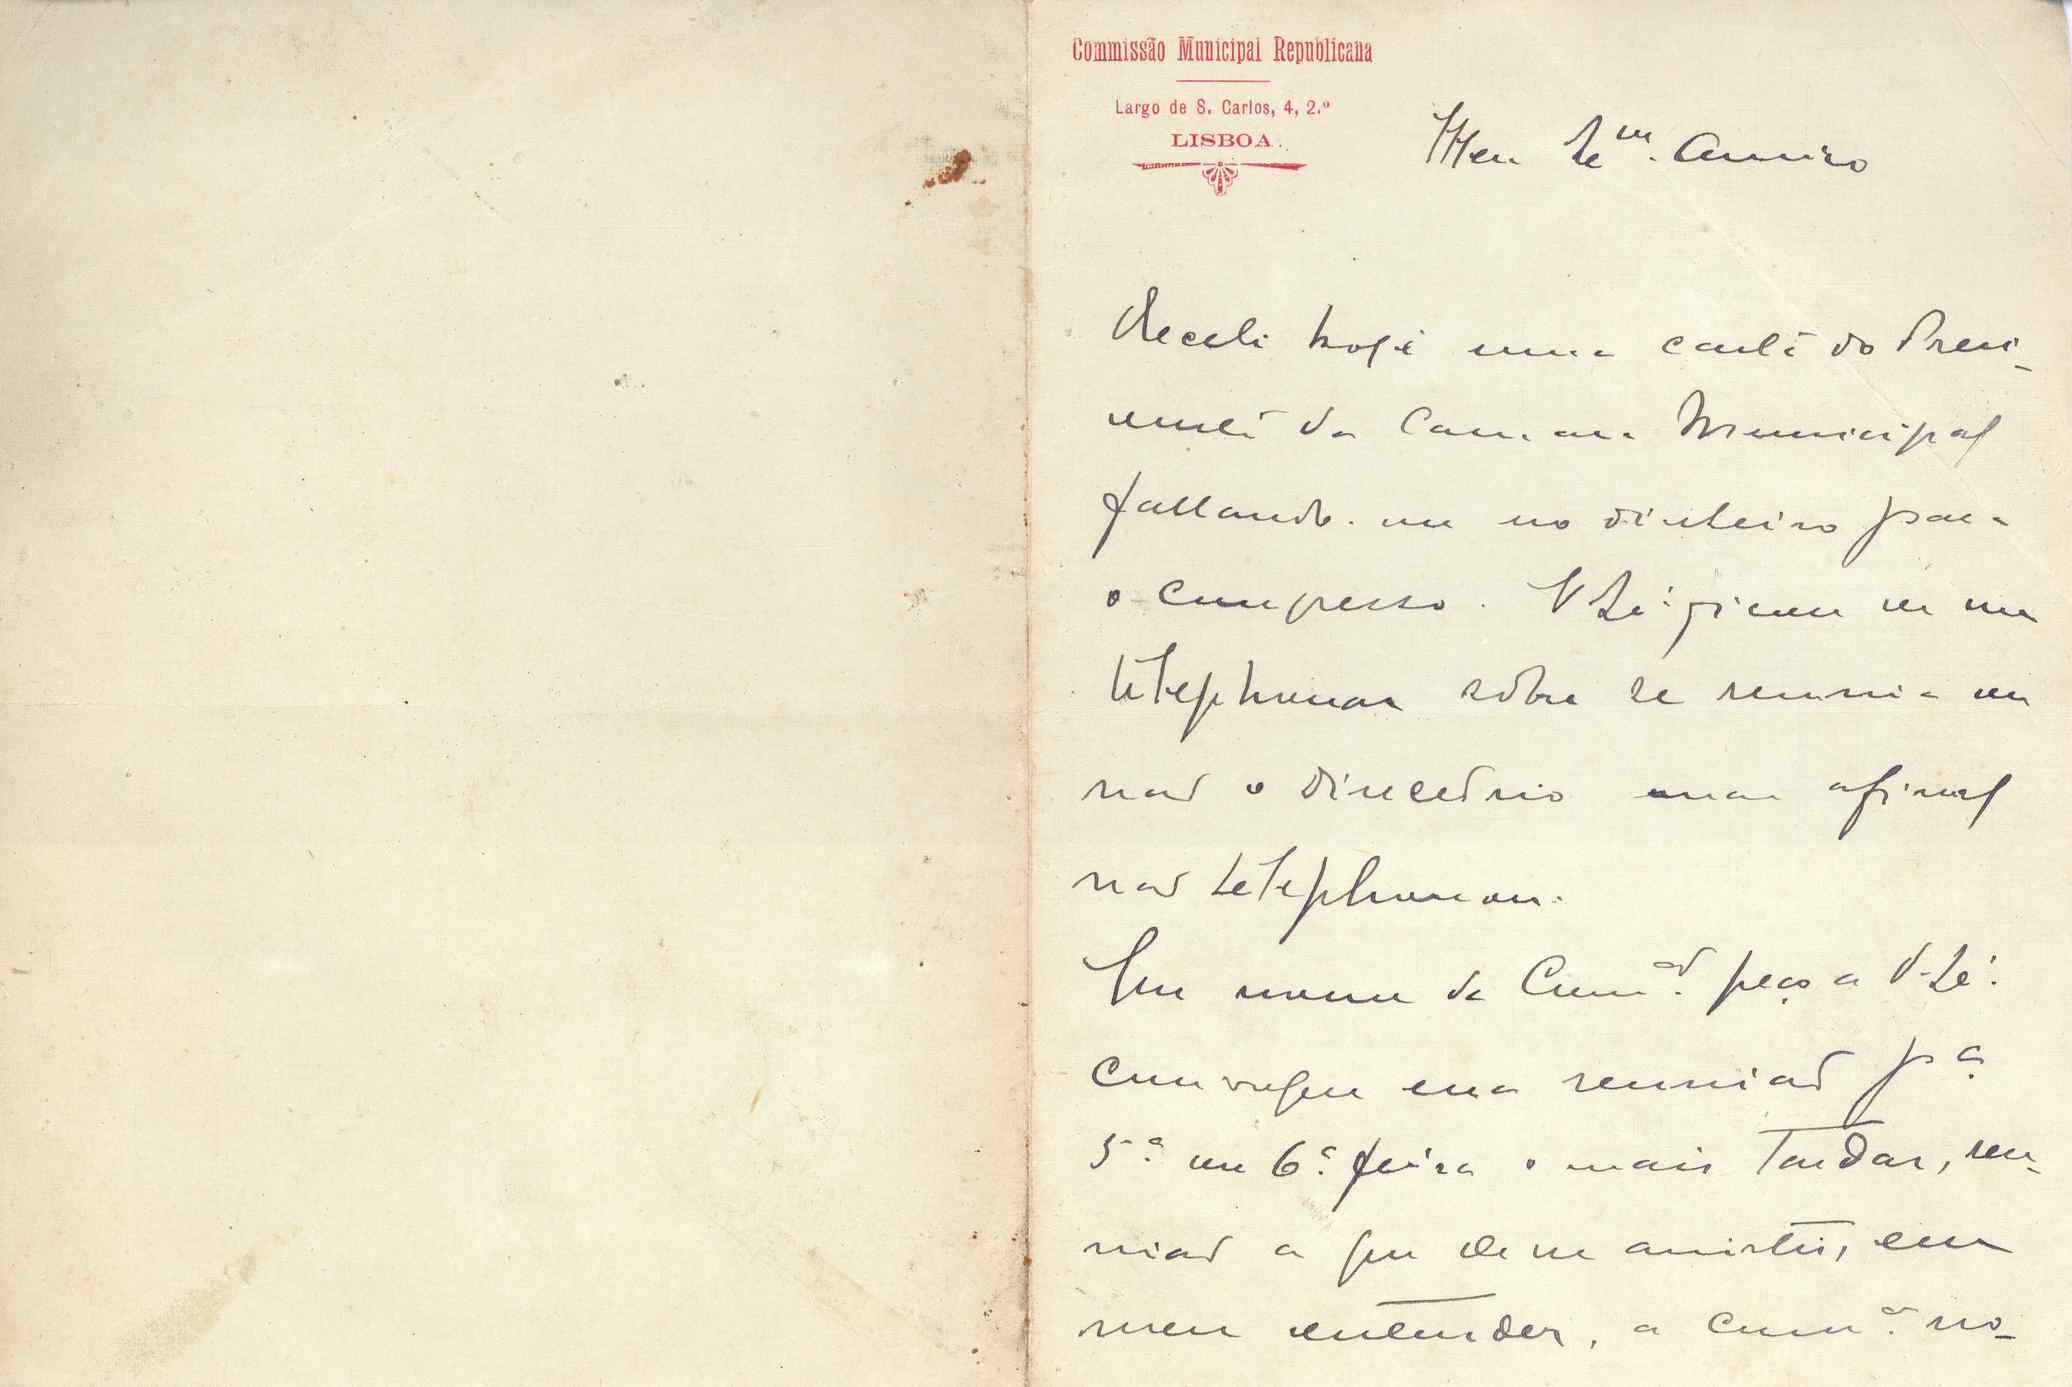 Commissão Municipal Republicana
Largo de S. Carlos, 4, 2.º
LISBOA
Meu Exm. Amigo
Recebi hoje uma carta do Presi-
dente da Camara Municipal
fallando-me no dinheiro para
o congresso. V. Exª. ficou de me
telephonar sobre se reunia ou
não o Directorio mas afinal
não telephonou.
Em nome da Comão. peço a V. Exª.
convoque uma reunião pª.
5ª. ou 6ª. feira o mais tardar, reu-
nião a que deve assistir, em
meu entender, a Comão. no-